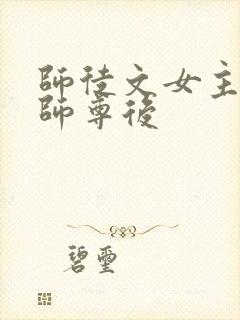 師徒文女主
師尊後
碧璽